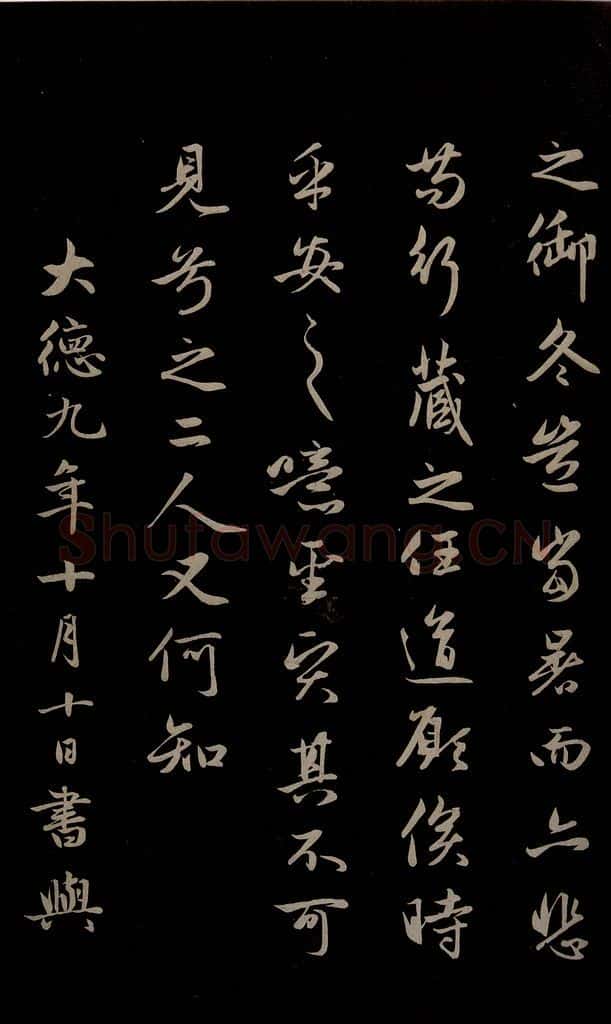 之御冬豈當暑而亦悲
苟行藏之任道顧俟時
乎安之噫聖賢其不可
見兮之二人又何知
大德九年十月十日書與
Shufawang.CN